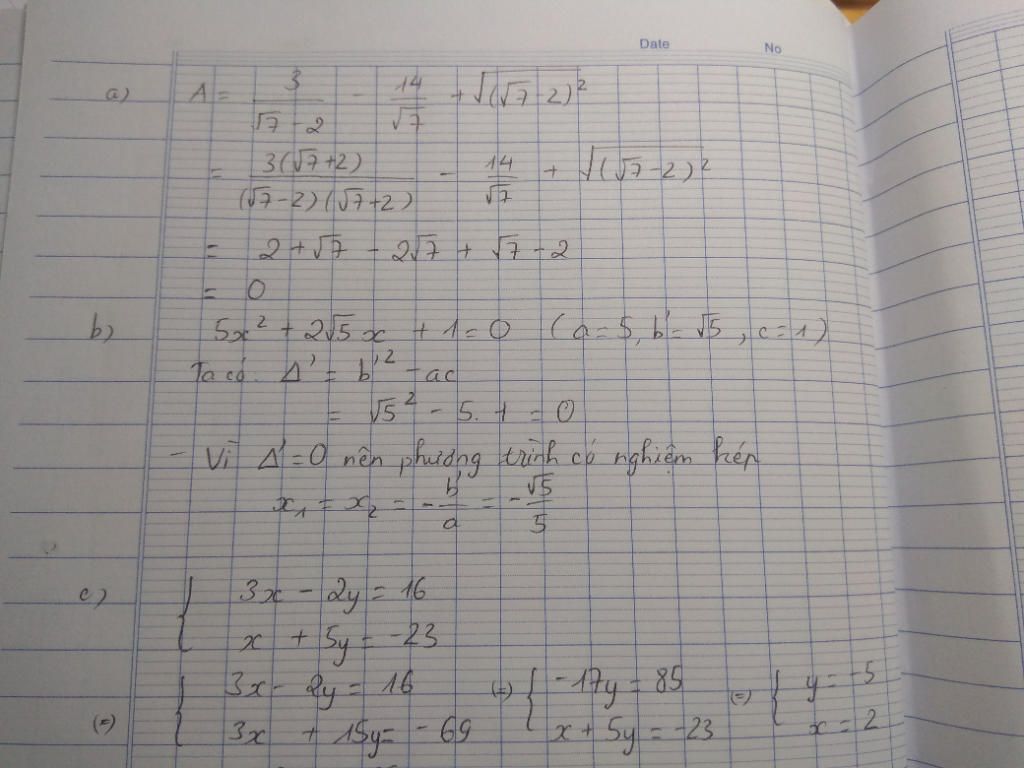 Date No
a) A = 3/(√7 - 2) - 14/√7 + √((√7 - 2)²)
= 3(√7+2)/((√7-2)(√7+2)) - 14/√7 + √((√7-2)²)
= 2 + √7 - 2√7 + √7 - 2
= 0
b) 5x² + 2√5x + 1 = 0 (a = 5, b' = √5, c = 1)
Ta có: Δ' = b'² - ac
= √5² - 5.1 = 0
- Vì Δ' = 0 nên phương trình có nghiệm kép
x₁ = x₂ = -b'/a = -√5/5
c) { 3x - 2y = 16
x + 5y = -23
(=) { 3x - 2y = 16 (=) { -17y = 85 (=) { y = -5
3x + 15y = -69 x + 5y = -23 x = 2